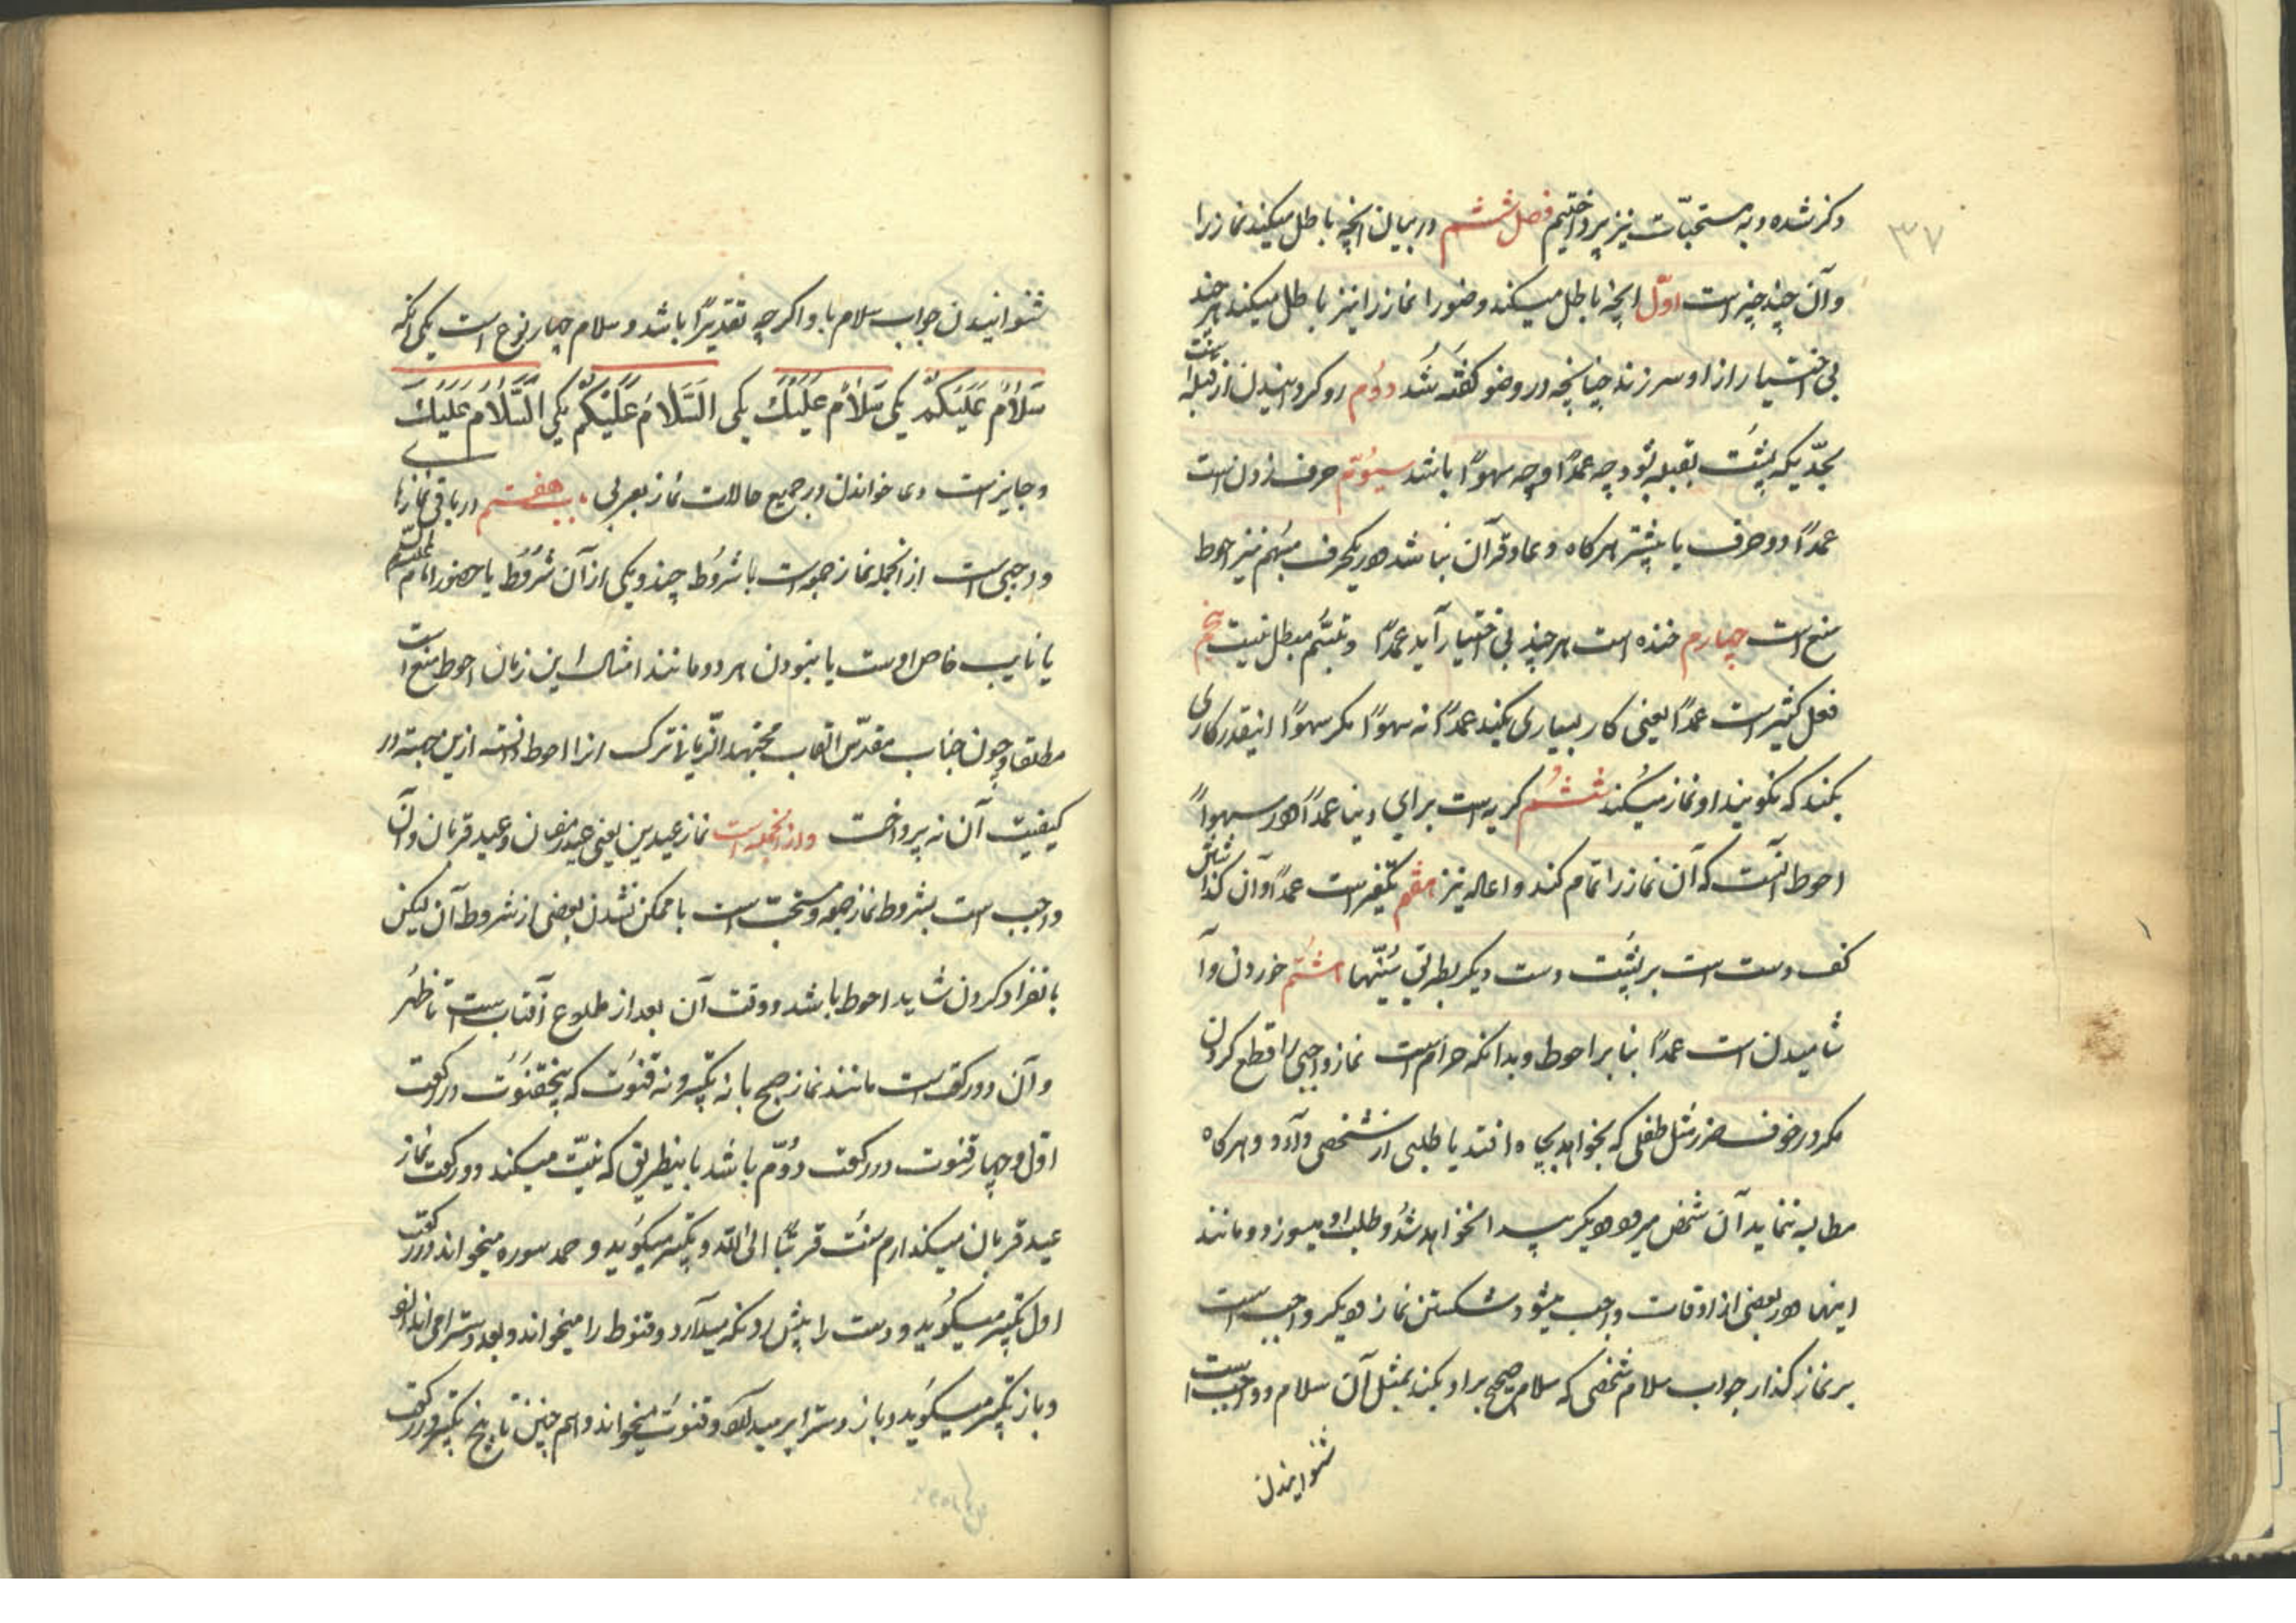 ۳۷
ذکر شده و به مستحبّات نیز پرداختیم فصل ششم در بیان انچه باطل میکند نماز را
و آن چند چیز است اوّل انچه باطل میکند وضو را نماز را نیز باطل میکند هر چند
بی اختیار از او سر زند چنانچه در وضو کفته شد دوّم رو کردانیدن از قبله است
بحدّیکه پشت بقبله بود چه عمدًا و چه سهوًا باشد سیوّم حرف زدن است
عمدًا دو حرف یا بیشتر هرکاه دعا و قرآن نباشد و در یکحرف مبهم نیز احوط
منع است چهارم خنده است هر چند بی اختیار آید عمدًا و تبسّم مبطل نیست پنجم
فعل کثیر است عمدًا یعنی کار بسیاری بکند عمدًا نه سهوًا مکر سهوًا اینقدر کاری
بکند که نکویند او نماز میکند ششم کریه است برای دنیا عمدًا و در سهوًا
احوط آنست که آن نماز را تمام کند و اعاده نیز هفتم تکفیر است عمدًا و آن کذاشتن
کف دست است بر پشت دست دیکر بطریق سنّیها هشتم خوردن و آ
شامیدن است عمدًا بنا بر احوط و بدانکه حرام است نماز واجبی را قطع کردن
مکر در خوف ضرر مثل طفلی که بخواهد بچاه افتد یا طلبی از شخصی دارد و هرکاه
مطالبه ننماید آن شخص میرود دیکر پیدا نخواهد شد و طلب او میسوزد و مانند
اینها و در بعضی از اوقات واجب میشود شکستن نماز و دیکر واجب است
بر نماز کذار جواب سلام شخصی که سلام صحیح بر او بکند بمثل آن سلام و واجب است
شنوانیدن
شنوانیدن جواب سلام باو اکر چه تقدیرًا باشد و سلام چهار نوع است یکی انکه
سَلَامٌ عَلَیْکُمْ یکی سَلَامٌ عَلَیْكَ یکی السَّلَامُ عَلَیْکُمْ یکی السَّلَامُ عَلَیْكَ
و جایز است دعا خواندن در جمیع حالات نماز بعربی باب هفتم در باقی نمازها
واجبی است از انجمله نماز جمعه است با شروط چند و یکی از آن شروط یا حضور امام علیه السلام
یا نایب خاص اوست یا نبودن هر دو مانند امثال این زمان احوط منع است
مطلقا و چون جناب مقدّس القاب مجتهد الزّمانی ترک انرا احوط دانسته ازین جهته در
کیفیت آن نه پرداخت و از انجمله است نماز عیدین یعنی عید رمضان و عید قربان و آن
واجب است بشروط نماز جمعه و مستحبّ است با ممکن نشدن بعضی از شروط آن لیکن
بانفراد کردن شاید احوط باشد و وقت آن بعد از طلوع آفتاب است تا ظهر
و آن دو رکعت است مانند نماز صبح با نه تکبیر و نه قنوت که پنج قنوت در رکعت
اوّل و چهار قنوت در رکعت دوّم باشد باینطریق که نیّت میکند دو رکعت نماز
عید قربان میکذارم سنّت قربتًا الی الله و تکبیر میکوید و حمد سوره میخواند در رکعت
اول تکبیر میکوید و دست را پیش رو نکه میدارد و قنوط را میخواند و بعد دسترا می اندازد
و باز تکبیر میکوید و باز دسترا بر میدارد و قنوت میخواند و هم چنین تا پنج تکبیر در رکعت